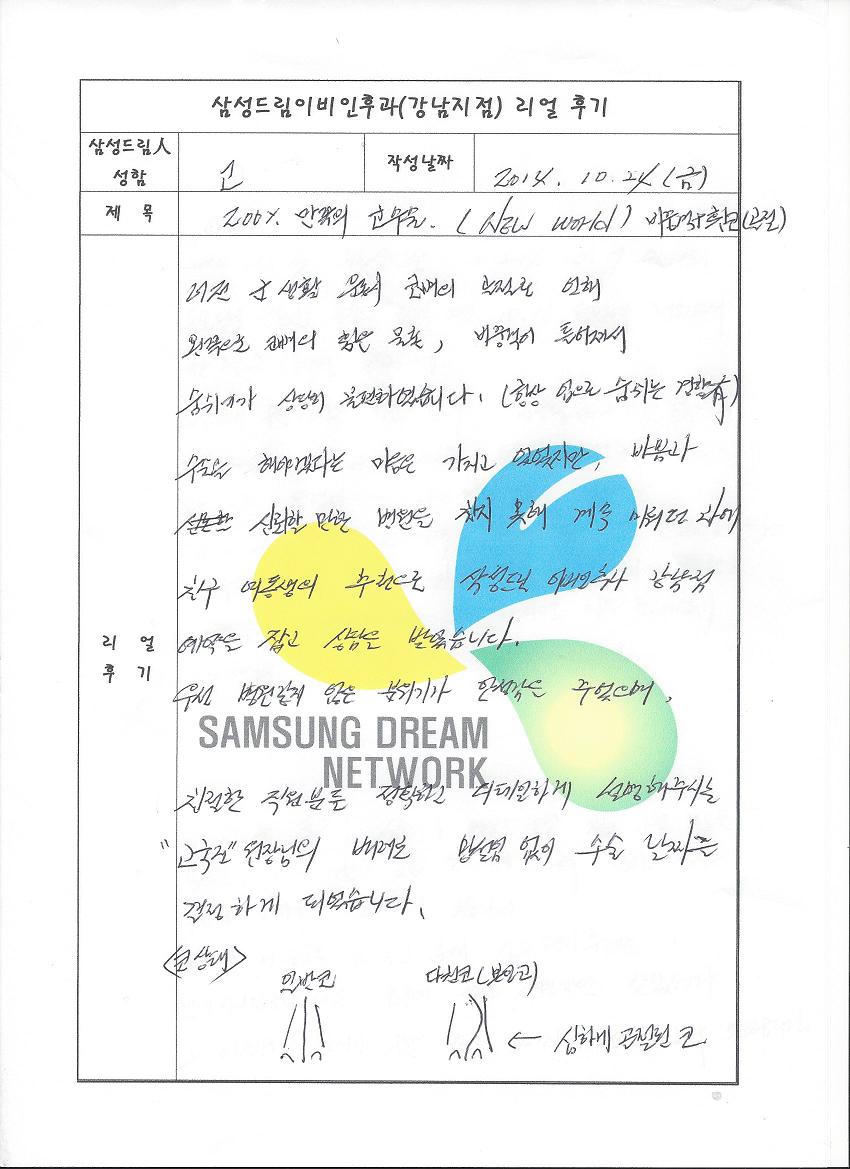 삼성드림이비인후과(강남지점) 리얼 후기
삼성드림人 성함
고
작성날짜
2014. 10. 24 (금)
제 목
200% 만족의 코수술. (NEW WORLD) 비중격 휜코(골절)
리얼 후기
예전 군 생활 문제 코뼈의 골절로 인해
왼쪽으로 코뼈의 휨은 물론, 비중격이 틀어져서
숨쉬기가 상당히 불편하였습니다. (항상 입으로 숨쉬는 경향有)
수술을 해야겠다는 마음은 가지고 있었지만, 바쁨과
신뢰할 만한 병원을 찾지 못해 계속 미뤄던 차에
친구 여동생의 추천으로 삼성드림 이비인후과 강남점
예약을 잡고 상담을 받았습니다.
우선 병원같지 않은 분위기가 안정감을 주었으며,
SAMSUNG DREAM
NETWORK
친절한 직원분들 정확하고 디테일하게 설명해주시는
" " 원장님의 배려로 망설임 없이 수술 날짜를
결정하게 되었습니다.
<코상태>
일반코
다친코(본인코)
← 심하게 골절된 코